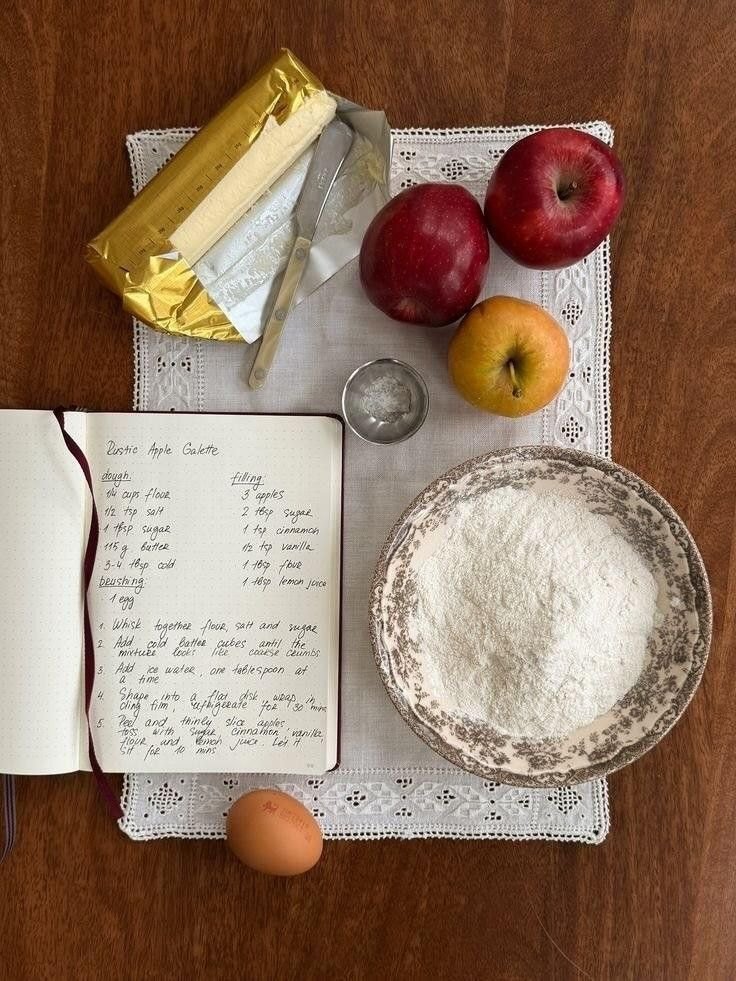 Rustic Apple Galette
dough:
· 1/4 cups flour
· 1/2 tsp salt
· 1 tbsp sugar
· 115 g butter
· 3-4 tbsp cold
brushing:
· 1 egg
filling:
· 3 apples
· 2 tbsp sugar
· 1 tsp cinnamon
· 1/2 tsp vanilla
· 1 tbsp flour
· 1 tbsp lemon juice
1. Whisk together flour, salt and sugar
2. Add cold butter cubes until the
mixture looks like coarse crumbs
3. Add ice water, one tablespoon at
a time
4. Shape into a flat disk, wrap in
cling film, refrigerate for 30 mins
5. Peel and thinly slice apples,
toss with sugar, cinnamon, vanilla,
flour and lemon juice. Let it
sit for 10 mins